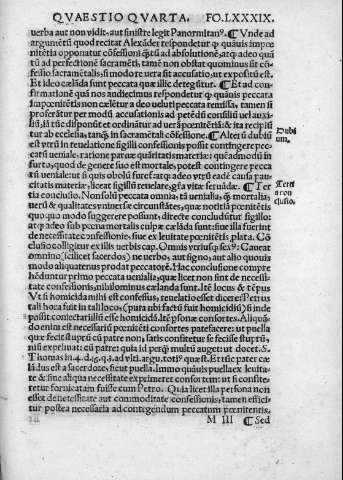 QVAESTIO QVARTA. FO.LXXXIX.
uerba aut non vidit, aut sinistre legit Panormitanꝰ. ¶ Vnde ad
argumẽtũ quod recitat Alexãder respondetur ꝙ quãuis impœ
nitẽtia opponatur cõfessioni quãtũ ad absolutionẽ, atꝙ adeo quã
tũ ad perfectionẽ sacramẽti, tamẽ non obstat quominus sit cõ-
fessio sacramẽtalis, si modo reuera sit accusatio, ut expositũ est.
Et ideo cælãda sunt peccata quæ illic detegitur. ¶ Et ad con
firmationẽ quã nos audiuimus respondetur ꝙ quãuis peccata
impœnitẽtis non cælẽtur a deo ueluti peccata remissa, tamen si
proferãtur per modũ accusationis ad petẽdũ consiliũ uel auxi-
liũ,
ab ecclesia, tanꝙ̃ in sacramẽtali cõfessione. ¶ Alterũ dubiũ
est vtrũ in reuelatione sigilli confessionis possit contingere pecca
tũ ueniale, ratione paruæ quãtitatis materiæ: quẽadmodũ in
furto, quod de genere suo est mortale, potest contingere pecca
tũ ueniale: ut si quis obolũ furet: atꝙ adeo vtrũ eadẽ causa pau
citatis materiæ, liceat sigillũ reuelare,
Dubi
um.
¶ Ter
tia conclusio. Non solũ peccata omnia, tã uenialia, ꝙ̃ mortalia:
Terti
a con
clusio.
uerũ & qualitates vniuersæ circũstãtes, quæ notitiã pœnitẽtis
quo quo modo suggerere possunt, directe concludũtur sigillo:
at ꝙ adeo sub pœna mortalis culpæ cælãda sunt: siue illa fuerint
de necessitate confessionis, siue ex leuitate pœnitẽtis plata. Cõ
clusio colligitur ex illis verbis cap. Omnis vtriusꝙ sexꝰ: Caueat
omnino (scilicet sacerdos) ne uerbo, aut signo, aut alio quouis
modo aliquatenus prodat peccatorẽ. Hac conclusione compre
hẽduntur primo peccata uenialia, quæ licet non sint de necessi-
tate confessionis, nihilominus cælanda sunt. Itẽ locus & tẽpus
Vt si homicida mihi est confessus, reuelatio esset dicere: Petrus
tali hora fuit in tali loco, (puta vbi factũ fuit homicidiũ) si inde
possit coniectari illũ esse homicidã. Itẽ psonæ consortes. Aliquã
do enim est necessariũ pœnitẽti consortes patefacere: ut puella
quæ fecit stuprũ cũ patre non, satis confitetur se fecisse stuprũ,
nisi exprimat: cũ patre: quia id perꝙ̃ multũ auget: ut docet. S.
Thomas in 4. d. 16. q. 3.
dus est a sacerdote, sicut puella. Immo quãuis puella ex leuita-
te & sine aliqua necessitate exprimeret consortem: ut si confite-
retur fornicatam fuisse cum Petro. Quia licet illa persona non
esset de necessitate aut commoditate confessionis, tamen effici
tur postea necessaria ad contegendum peccatum pœnitentis.
M III ¶ Sed